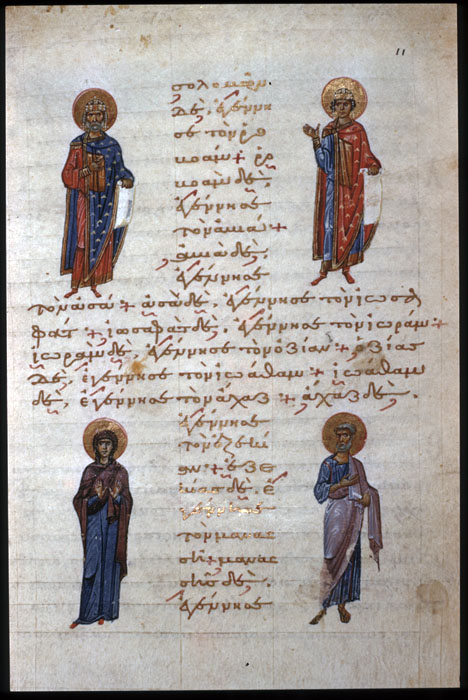 11
σολομὼν
δὲ, ἐγέννη
σε τὸν ῥο
βοάμ + ῥο
βοὰμ δὲ,
ἐγέννησε
τὸν ἀβιά +
ἀβιὰ δὲ,
ἐγέννησε
τὸν ἀσά + ἀσὰ δὲ, ἐγέννησε τὸν ἰωσα
φάτ + ἰωσαφὰτ δὲ, ἐγέννησε τὸν ἰωράμ +
ἰωρὰμ δὲ, ἐγέννησε τὸν ὀζίαν + ὀζίας
δὲ, ἐγέννησε τὸν ἰωάθαμ + ἰωάθαμ
δὲ, ἐγέννησε τὸν ἄχαζ + ἄχαζ δὲ,
ἐγέννησε
τὸν ἐζεκί
αν + ἐζε
κίας δὲ, ἐ
γέννησε
τὸν μανασ
σῆ + μανασ
σῆς δὲ,
ἐγέννησε